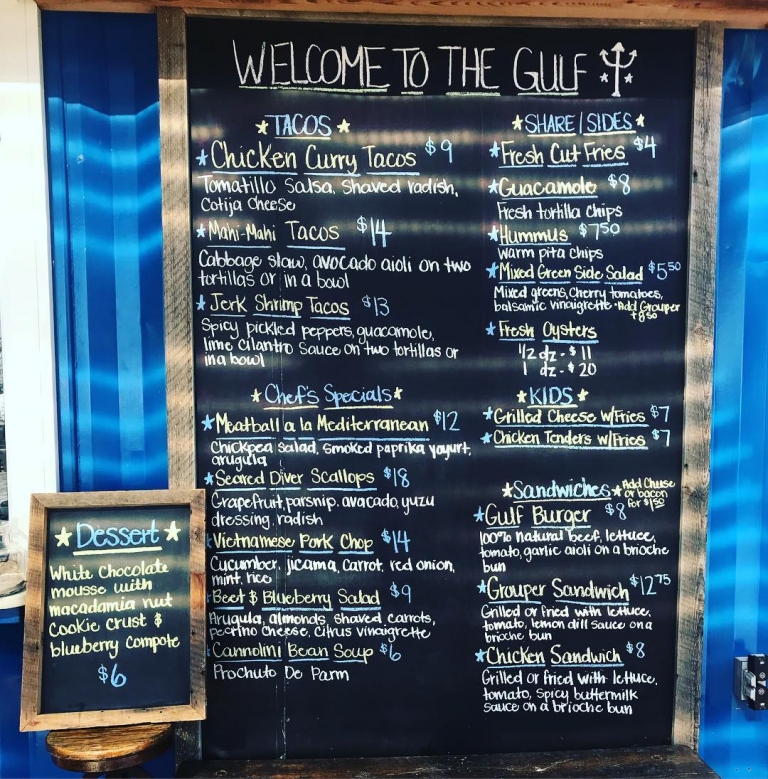 WELCOME TO THE GULF
TACOS
Chicken Curry Tacos $9
Tomatillo Salsa, Shaved radish,
Cotija Cheese
Mahi-Mahi Tacos $14
Cabbage slaw, avocado aioli on two
tortillas or in a bowl
Jerk Shrimp Tacos $13
Spicy pickled peppers, guacamole,
lime cilantro sauce on two tortillas or
in a bowl
Chef's Specials
Meatball a la Mediterranean $12
Chickpea salad, smoked paprika yogurt,
arugula
Seared Diver Scallops $18
Grapefruit, parsnip, avocado, yuzu
dressing, radish
Vietnamese Pork Chop $14
Cucumber, jicama, carrot, red onion,
mint, rice
Beet & Blueberry Salad $9
Arugula, almonds, shaved carrots,
pecorino cheese, citrus vinaigrette
Cannolini Bean Soup $6
Prochuto De Parm
SHARE/SIDES
Fresh Cut Fries $4
Guacamole $8
Fresh tortilla chips
Hummus $7.50
Warm pita chips
Mixed Green Side Salad $5.50
Mixed greens, cherry tomatoes,
balsamic vinaigrette *Add Grouper
+ 8.50
Fresh Oysters
1/2 dz - $11
1 dz - $20
KIDS
Grilled Cheese w/Fries $7
Chicken Tenders w/Fries $7
Sandwiches
Add Cheese
or bacon
for $1.50
Gulf Burger $8
100% natural beef, lettuce,
tomato, garlic aioli on a brioche
bun
Grouper Sandwich $12.75
Grilled or fried with lettuce,
tomato, lemon dill sauce on a
brioche bun
Chicken Sandwich $8
Grilled or fried with lettuce,
tomato, spicy buttermilk
sauce on a brioche bun
Dessert
White Chocolate
mousse with
macadamia nut
cookie crust &
blueberry compote
$6